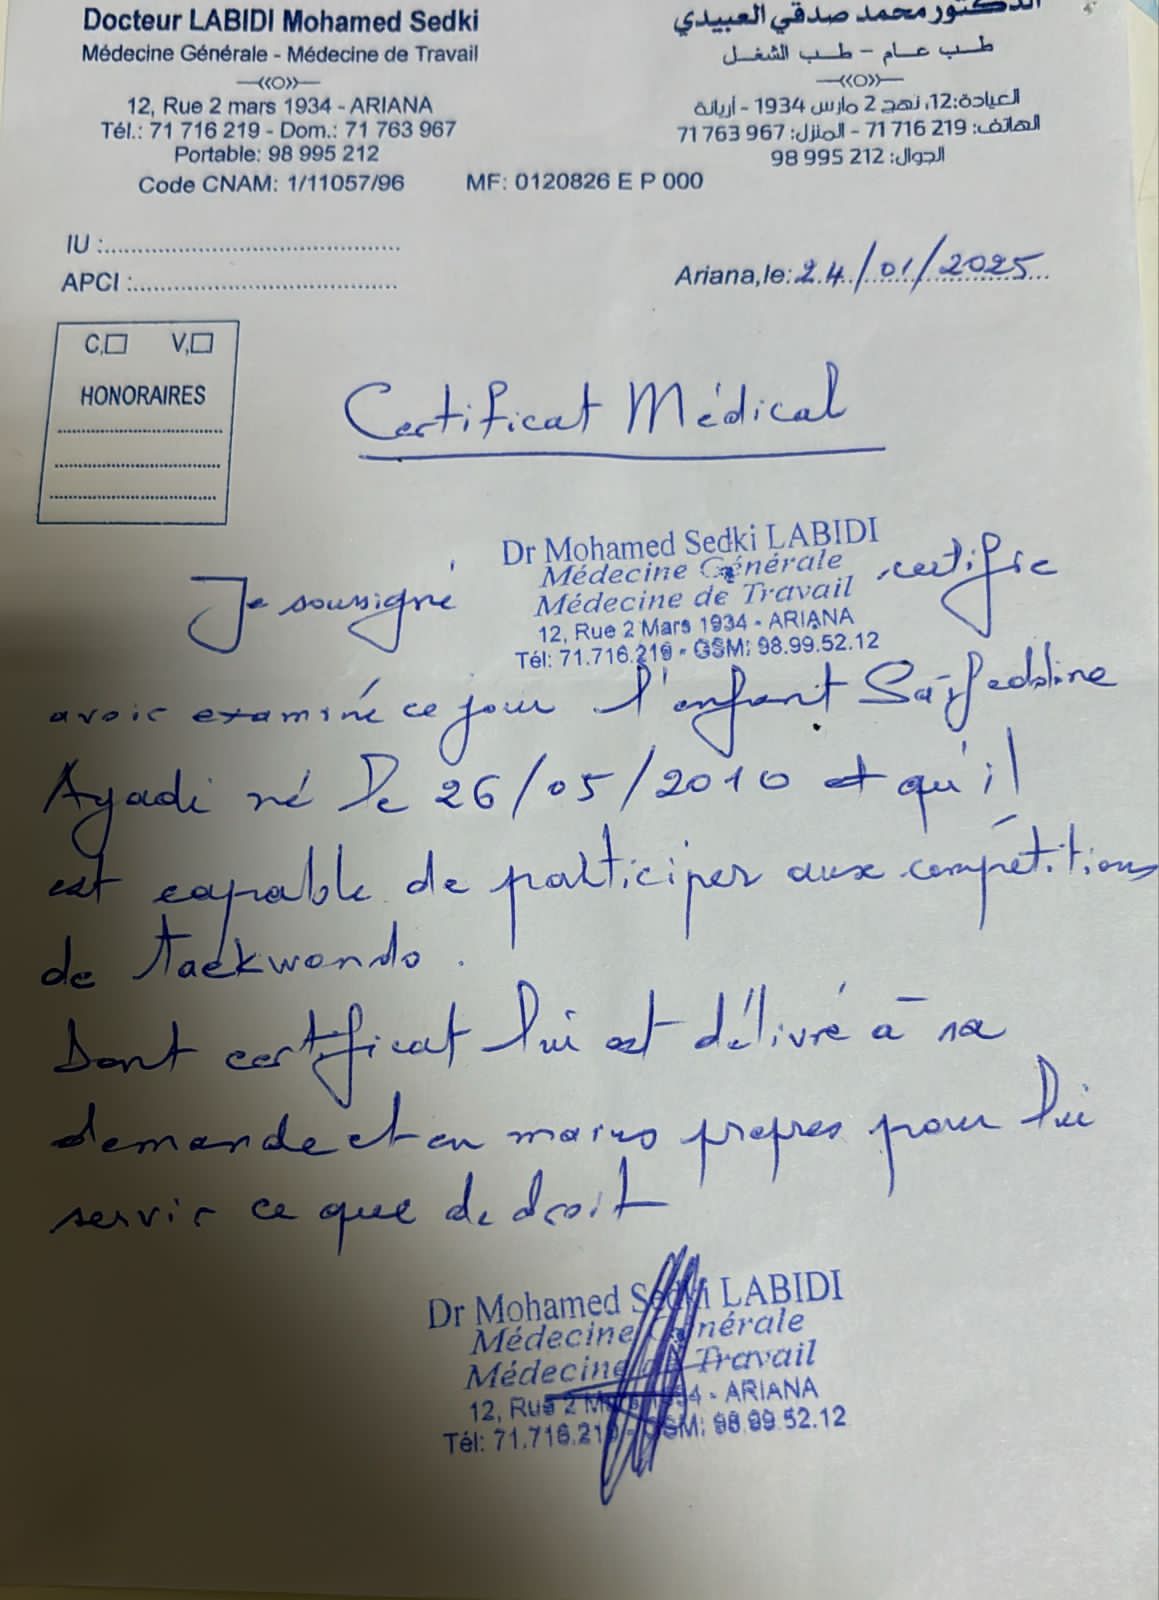 Docteur LABIDI Mohamed Sedki
Médecine Générale - Médecine de Travail
12, Rue 2 mars 1934 - ARIANA
Tél.: 71 716 219 - Dom.: 71 763 967
Portable: 98 995 212
Code CNAM: 1/11057/96
MF: 0120826 E P 000
الدكتور محمد صدقي العبيدي
طب عام - طب الشغل
العيادة: 12، نهج 2 مارس 1934 - أريانة
الهاتف: 219 716 71 - المنزل: 967 763 71
الجوال: 212 995 98
IU :
APCI :
Ariana,le: 24/01/2025
C, V,
HONORAIRES
Certificat Médical
Je soussigné
Dr Mohamed Sedki LABIDI
Médecine Générale
Médecine de Travail
12, Rue 2 Mars 1934 - ARIANA
Tél: 71.716.219 - GSM: 98.99.52.12
certifie
avoir examiné ce jour l'enfant Saifeddine
Ayadi né le 26/05/2010 et qu'il
est capable de participer aux compétitions
de taekwondo.
Dont certificat lui est délivré à sa
demande et en mains propres pour lui
servir ce que de droit
Dr Mohamed Sedki LABIDI
Médecine Générale
Médecine de Travail
12, Rue 2 Mars 1934 - ARIANA
Tél: 71.716.219 - GSM: 98.99.52.12